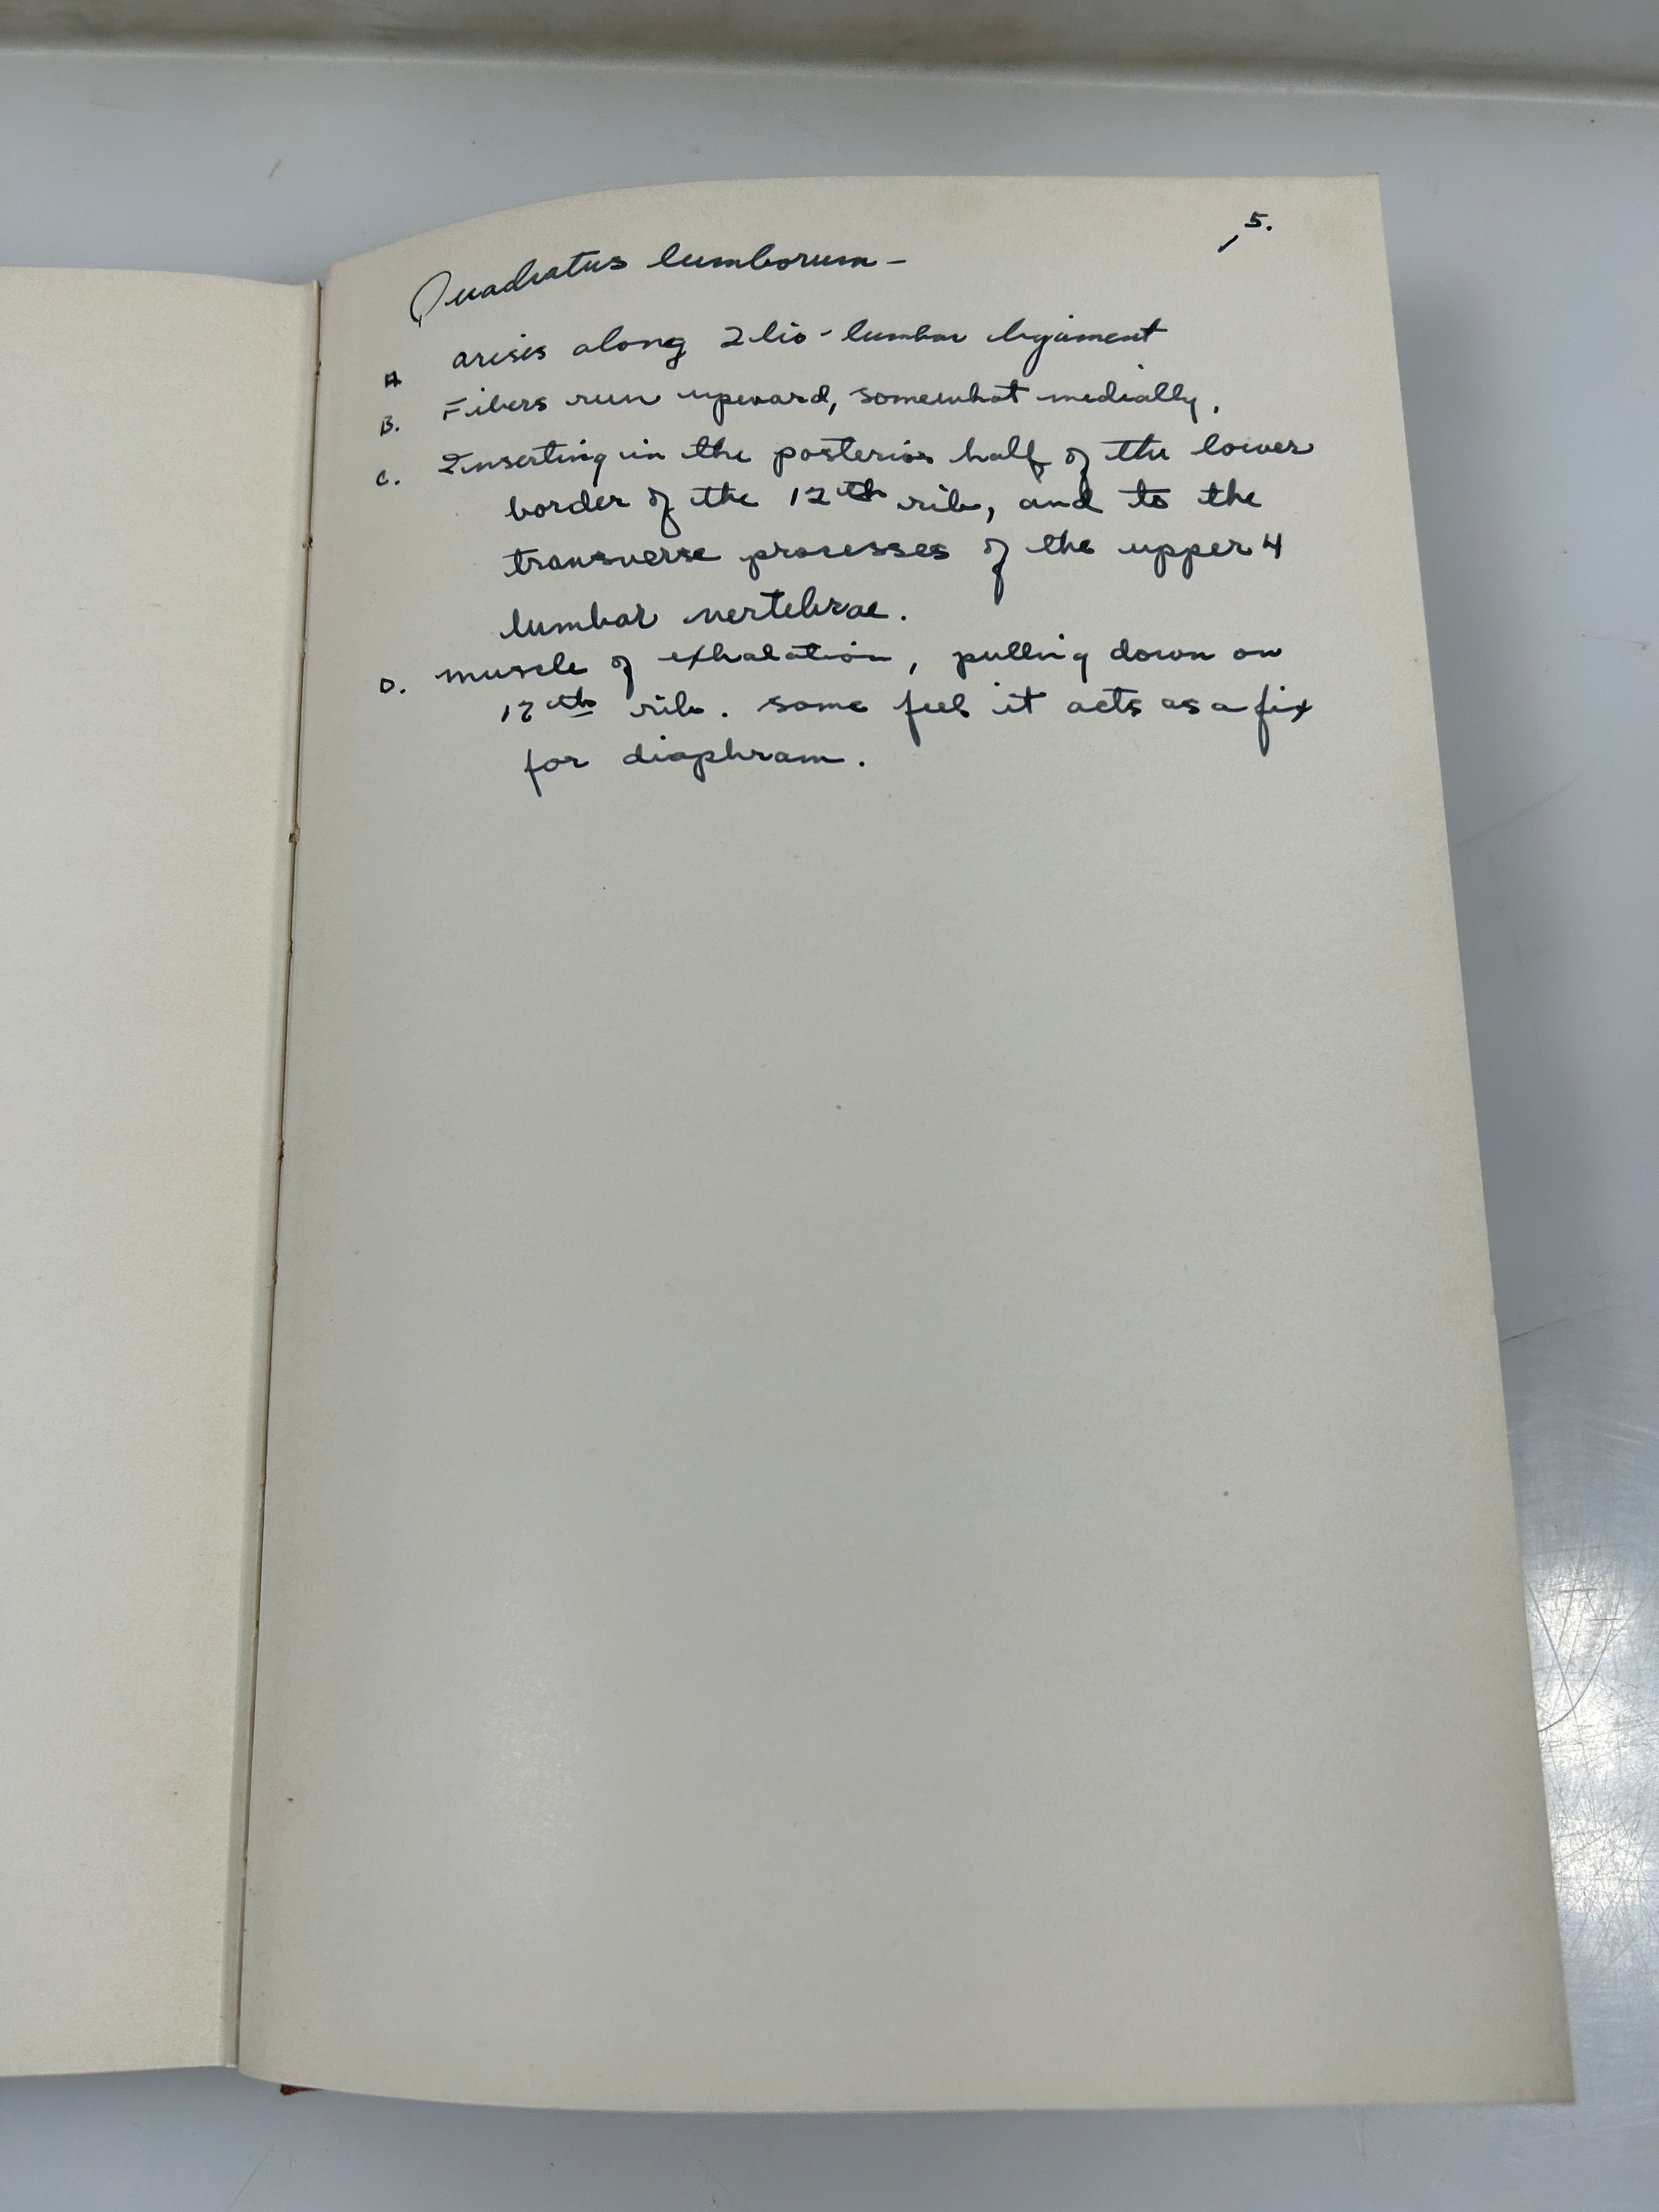 5.
Quadratus lumborum -
A. arises along Ilio-lumbar ligament
B. Fibers run upward, somewhat medially.
C. Inserting in the posterior half of the lower
border of the 12th rib, and to the
transverse processes of the upper 4
lumbar vertebrae.
D. muscle of exhalation, pulling down on
12th rib. some feel it acts as a fix
for diaphram.